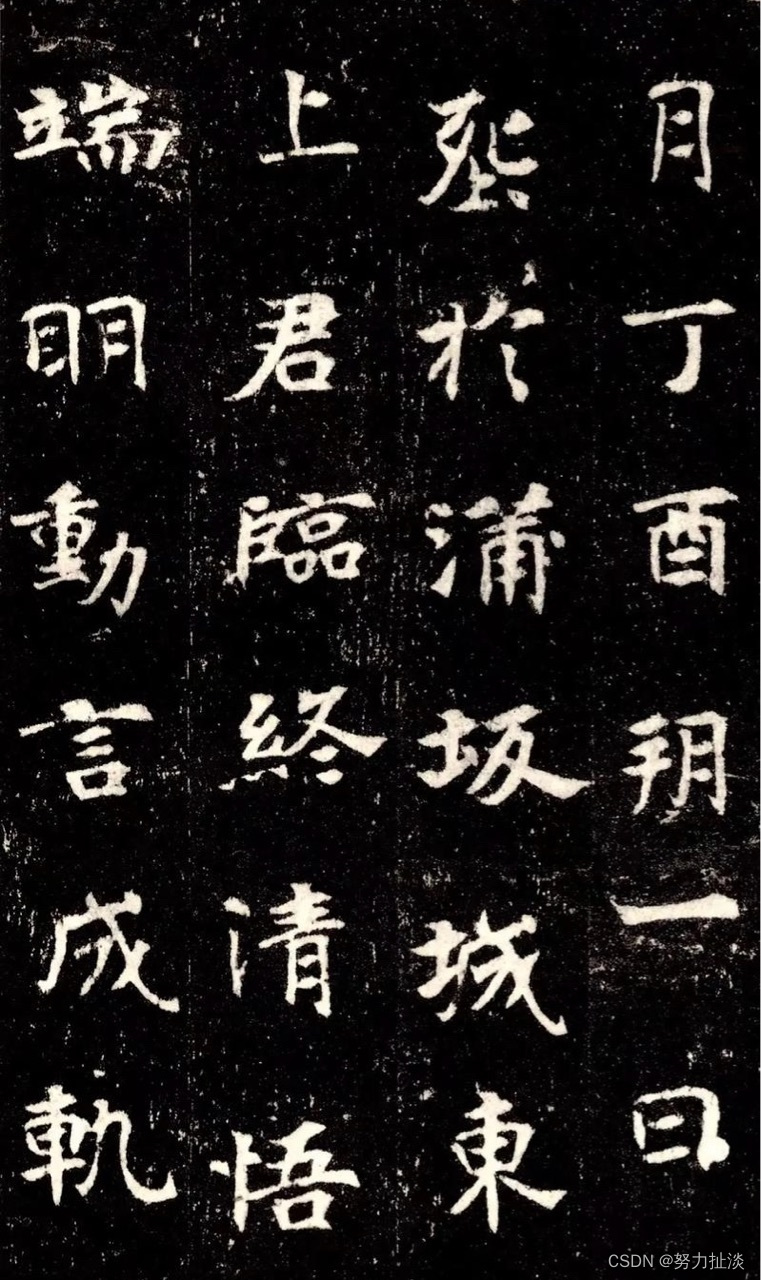 月丁酉朔一日
葬於蒲坂城東
上君臨終清悟
端明動言成軌
CSDN @努力扯淡